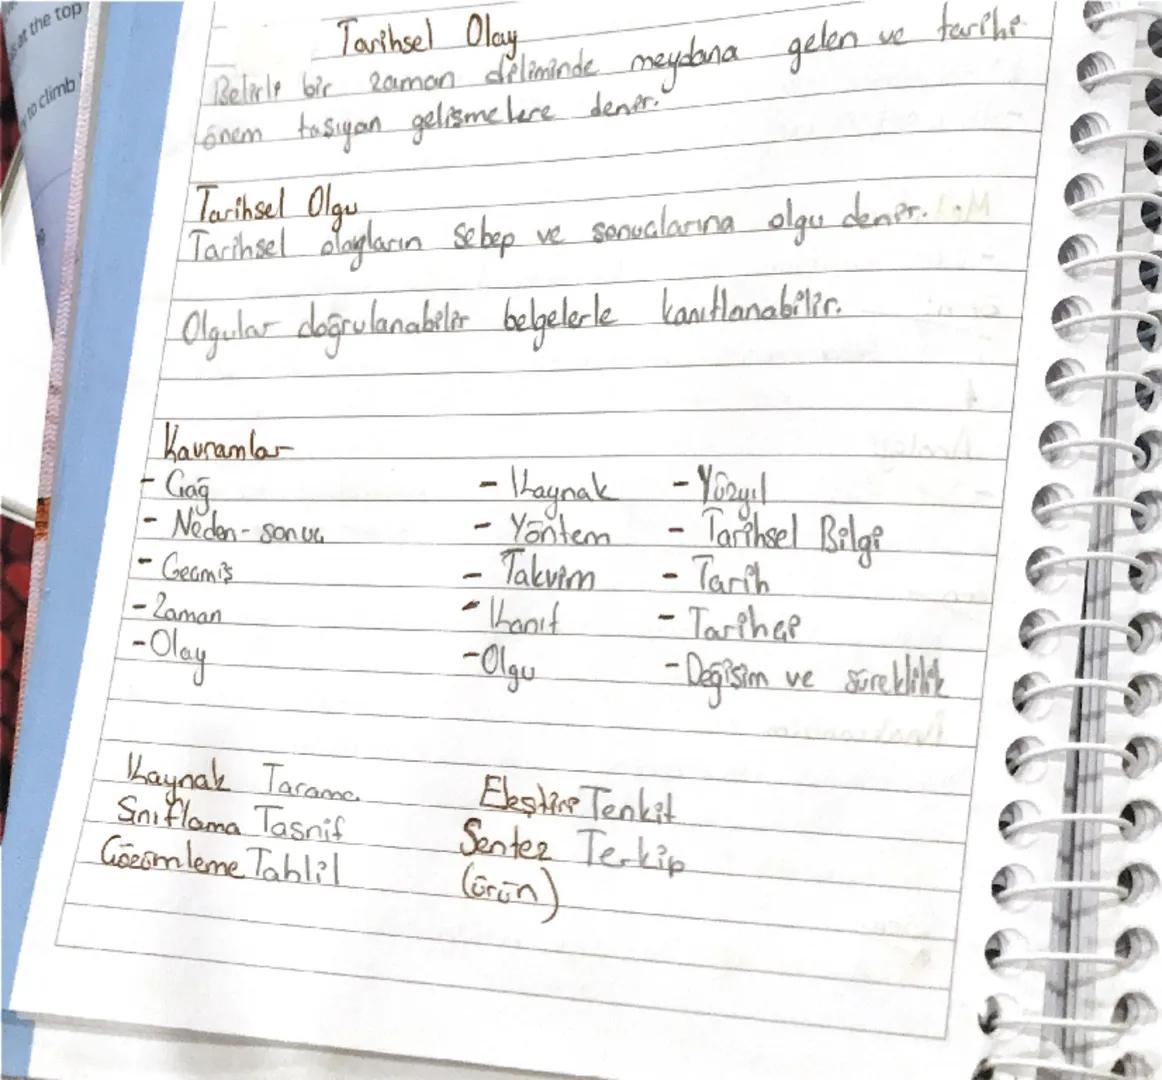 at the top
to climb
Tarihsel Olay
Belirli bir zaman diliminde meydana gelen ve tarihi
önem taşıyan gelişmelere denir.
Tarihsel Olgu
Tarihsel olayların sebep ve sonuçlarına olgu denir.
Olgular doğrulanabilir belgelerle kanıtlanabilir.
Kavramlar
- Çağ - Kaynak - Yüzyıl
- Neden-sonuç - Yöntem - Tarihsel Bilgi
- Geçmiş - Takvim - Tarih
- Zaman - Kanıt - Tarihçi
- Olay - Olgu - Değişim ve süreklilik
Kaynak Tarama Eleştiri Tenkit
Sınıflama Tasnif Sentez Terkip
Çözümleme Tahlil (ürün)